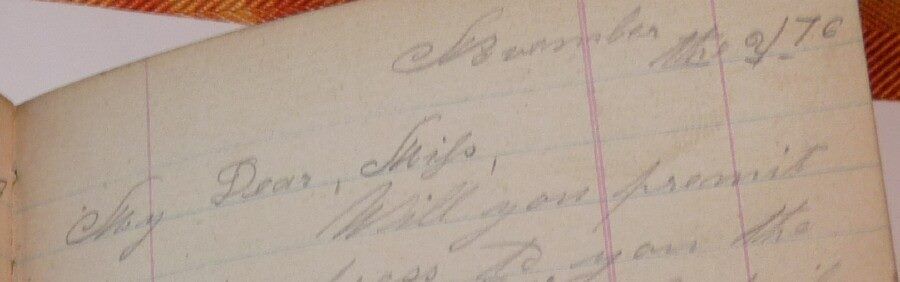 November the 9/-76
My Dear, Miss,
Will you premit
to you the